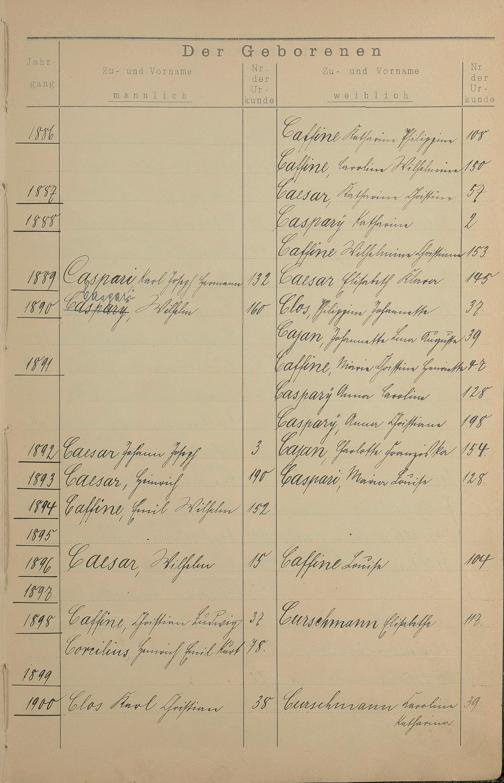 Der Geborenen
Jahrgang
Zu- und Vorname
männlich
Nr. der Urkunde
Zu- und Vorname
weiblich
Nr. der Urkunde
1886 Caffine Katharine Philippine 108
Caffine, Caroline Wilhelmine 130
1887 Caesar, Katharine Christine 57
1888 Caspary Katharine 2
Caffine Wilhelmine Christiane 153
1889 Caspari Karl Josef Hermann 132 Caesar Elisabeth Klara 145
Caspari
1890 Caspary, Wilhelm 160 Clos, Philippine Johannette 37
Cajan, Johannette Lina Auguste 39
1891 Caffine, Marie Christine Henriette 42
Caspary Anna Caroline 128
Caspary, Anna Christiane 198
1892 Caesar Johann Josef 3 Cajan Charlotte Franziska 154
1893 Caesar, Heinrich 190 Caspari, Maria Louise 128
1894 Caffine, Emil Wilhelm 152
1895
1896 Caesar, Wilhelm 15 Caffine Louise 104
1897
1898 Caffine, Christian Ludwig 37 Curschmann Elisabethe 113
Corcilius Heinrich Emil Kurt 78.
1899
1900 Clos Karl Christian 38 Curschmann Karoline 39
Katharina